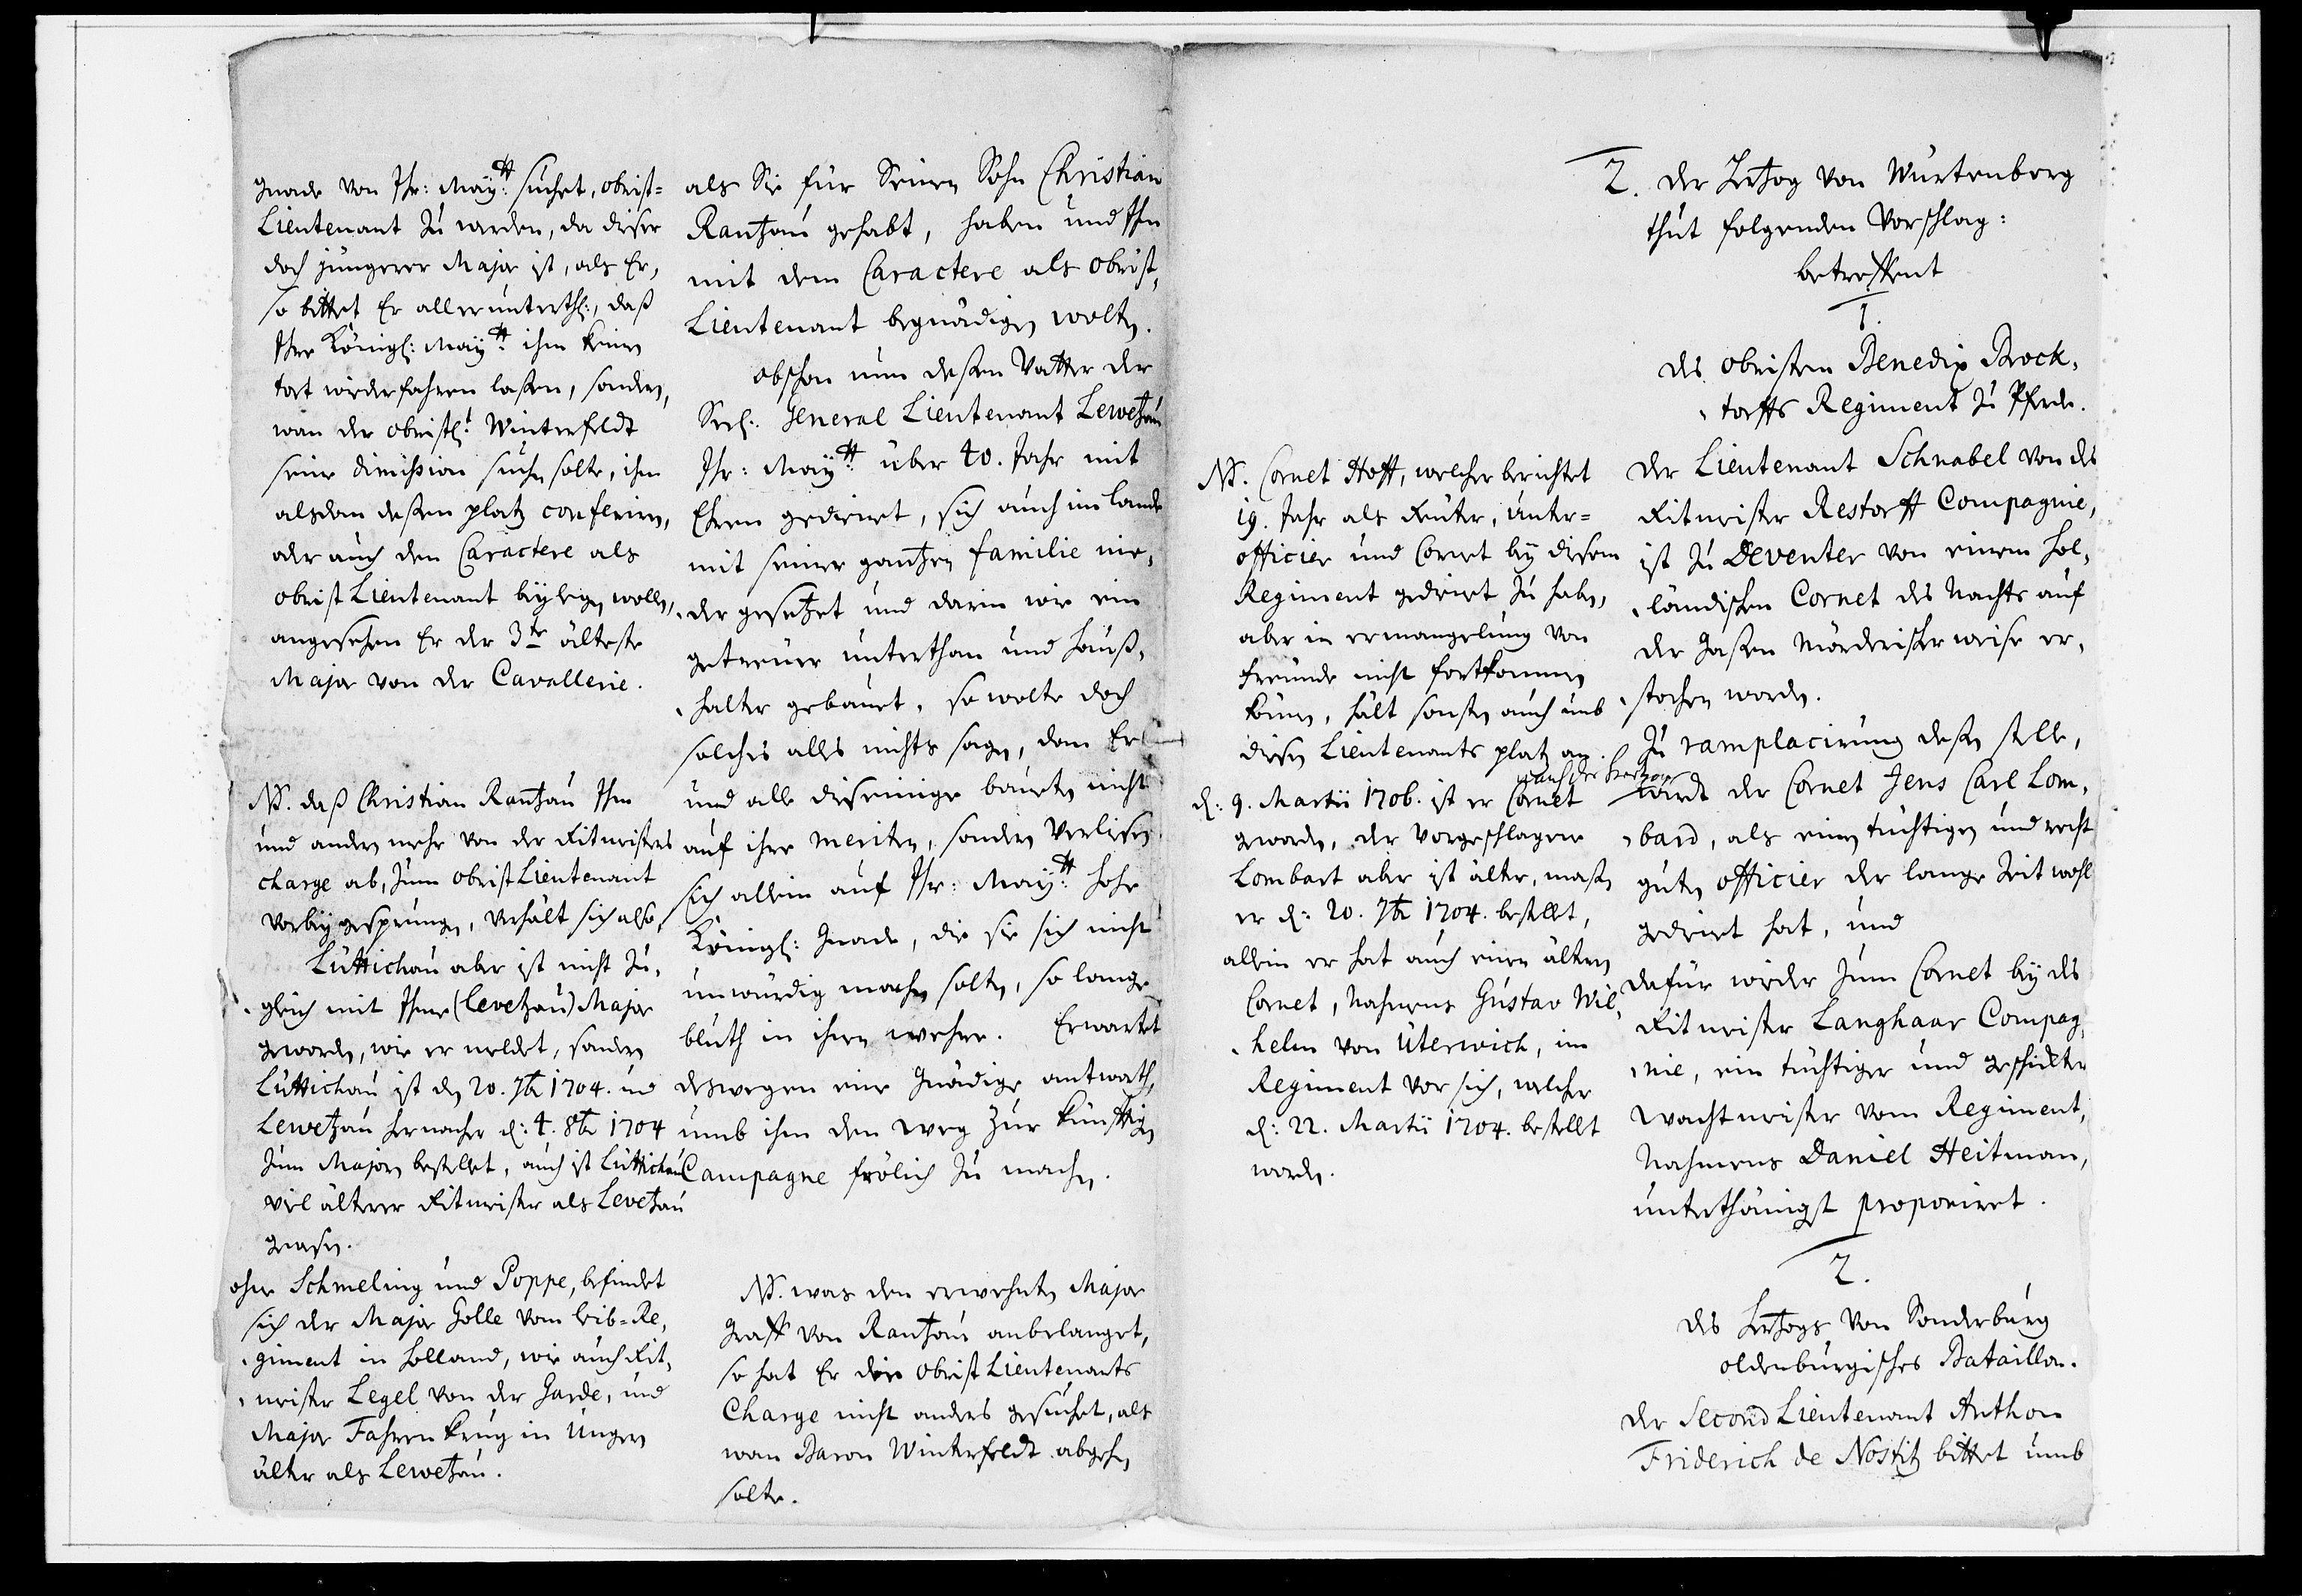 gnade von Ihr: Maÿtt: suchet, obrist=
Lieutenant zu werden, da dieser
doch jüngerer Major ist, als Er,
so bittet Er allerunterth:, daß
Ihre Königl: Maÿtt: ihm keinen
tort wiederfahren laßen, sondern,
wan der obristl: Winterfeldt
seine dimission suchen solte, ihm
alsdan deßen platz conferiren,
oder auch den Caractere als
obrist Lieutenant beÿlegen wollen,
angesehen Er der 3te älteste
Major von der Cavallerie.
NB. daß Christian Rantzau Ihm
und andern mehr von der Ritmeisters
charge ab, zum obrist Lieutenant
vorbeÿ gesprungen, verhält sich also,
Lüttichau aber ist nicht zu,
gleich mit Ihme (Levetzau) Major
geworden, wie er meldet, sondern
Lüttichau ist den 20. 7br 1704. und
Lewetzau hernacher d: 4. 8br 1704
zum Majorn bestellet, auch ist Lüttichau
viel älterer Ritmeister als Levetzau
gewesen.
ohne Schmeling und Poppe, befindet
sich der Major Golle vom Leib=Re,
giment in Holland, wie auch Rit,
meister Legel von der Garde, und
Major Fahrenkrug in Ungern
älter als Lewetzau.
als Sie für Seinen Sohn Christian
Rantzau gehabt, haben und Ihn
mit dem Caractere als obrist,
Lieutenant begnädigen wolten.
obschon nun deßen Vatter der
Seel: General Lieutenant Lewetzau
Ihr: Maÿtt: über 40. Jahr mit
Ehren gedienet, sich auch im Lande
mit seiner gantzen familie nie,
der gesetzet und darin wie ein
getreuer unterthan und Hauß,
halter gebauet, so wolte doch
solches alles nichts sagen, dan Er
und alle diejenige bauten nicht
auf ihre meriten, sondern verließen
sich allein auf Ihr: Maÿtt: hohe
Königl: Gnade, die sie sich nicht
unwürdig machen solten, so lange
bluth in ihren wehre. Erwartet
deswegen eine gnädige antworth,
umb ihm den weg zur künfftigen
Campagne frölich zu machen.
NB. was den erwehnten Major
Graff von Rantzau anbelanget,
so hat Er die obrist Lieutenants
Charge nicht anders gesuchet, als
wan Baron Winterfeldt abgehen
solte.
NB. Cornet Hoff, welcher berichtet
19. Jahr als Reuter, Unter=
officier und Cornet beÿ diesem
Regiment gedienet zu haben,
aber in ermangelung von
freunde nicht fortkommen
können, hält sonsten auch umb
diesen Lieutenants platz an.
d: 9. Martii 1706. ist er Cornet
geworden, der vorgeschlagene
Lombart aber ist älter, maßen
er d: 20. 7br 1704. bestellt,
allein er hat auch einen ältern
Cornet, Nahmens Gustav Wil,
helm von Üterwich, im
Regiment vor sich, welcher
d: 22. Martii 1704. bestellt
worden.
2. Der Hertzog von Würtenberg
thut folgenden Vorschlag:
betreffent
1.
des obristen Benedix Brock,
torffs Regiment zu Pferde.
Der Lieutenant Schnabel von des
Ritmeister Restorff Compagnie,
ist zu Deventer von einem hol,
ländischen Cornet des Nachts auf
der Gaßen mörderischer weise er,
stochen worden.
Zu ramplacirung deßen stelle,
wirdt der Cornet Jens Carl Lom,
bard, als einen tüchtigen und recht
guten officier der lange Zeit wohl
gedienet hat, und
dafür wieder zum Cornet beÿ des
Ritmeister Langhaar Compag,
nie, ein tüchtiger und geschickter
wachtmeister vom Regiment,
Nahmens Daniel Heitman,
unterthänigst proponiret.
2.
des Hertzogs von Sonderburg
oldenburgisches Bataillon.
Der Second Lieutenant Anthon
Friderich de Nostitz bittet umb